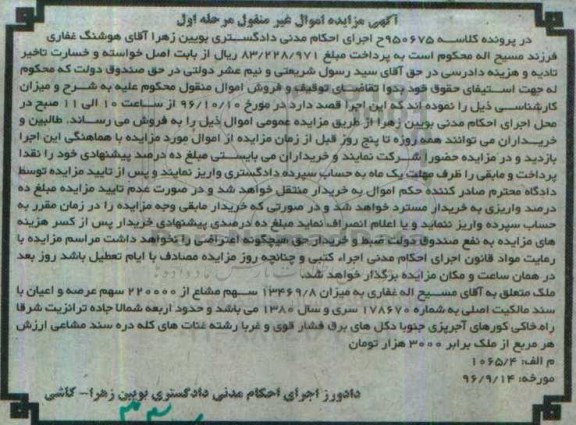 آگهی مزایده اموال غیر منقول مرحله اول
در پرونده کلاسه ۹۵۰۶۷۵ج اجرای احکام مدنی دادگستری بویین زهرا آقای هوشنگ غفاری
فرزند مسیح اله محکوم است به پرداخت مبلغ ۸۳/۲۲۸/۹۷۱ ریال از بابت اصل خواسته و خسارت تاخیر
تادیه و هزینه دادرسی در حق آقای سید رسول شریعتی و نیم عشر دولتی در حق صندوق دولت که محکوم
له جهت استیفای حقوق خود بدوا تقاضای توقیف و فروش اموال منقول محکوم علیه به شرح و میزان
کارشناسی ذیل را نموده اند که این اجرا قصد دارد در مورخ ۹۶/۱۰/۱۰ از ساعت ۱۰ الی ۱۱ صبح در
محل اجرای احکام مدنی بویین زهرا از طریق مزایده عمومی اموال ذیل را به فروش می رساند. طالبین و
خریداران می توانند همه روزه تا پنج روز قبل از زمان مزایده از اموال مورد مزایده با هماهنگی این اجرا
بازدید و در مزایده حضورا شرکت نمایند و خریداران می بایستی مبلغ ده درصد پیشنهادی خود را نقدا
پرداخت و مابقی را ظرف مهلت یک ماه به حساب سپرده دادگستری واریز نمایند و پس از تایید مزایده توسط
دادگاه محترم صادر کننده حکم اموال به خریدار منتقل خواهد شد و در صورت عدم تایید مزایده مبلغ ده
درصد واریزی به خریدار مسترد خواهد شد و در صورتی که خریدار مابقی وجه مزایده را در زمان مقرر به
حساب سپرده واریز ننماید و یا اعلام انصراف نماید مبلغ ده درصدی پیشنهادی خریدار پس از کسر هزینه
های مزایده به نفع صندوق دولت ضبط و خریدار حق هیچگونه اعتراضی را نخواهد داشت مراسم مزایده با
رعایت مواد قانون اجرای احکام مدنی اجراء کتبی و چنانچه روز مزایده مصادف با ایام تعطیل باشد روز بعد
در همان ساعت و مکان مزایده برگذار خواهد شد.
ملک متعلق به آقای مسیح اله غفاری به میزان ۱۳۴۶۹/۸ سهم مشاع از ۲۲۰۰۰۰ سهم عرصه و اعیان با
سند مالکیت اصلی به شماره ۱۷۸۶۷۰ سری و سال ۱۳۸۰ می باشد و حدود اربعه شمالا جاده ترانزیت شرقا
راه خاکی کورهای آجرپزی جنوبا دکل های برق فشار قوی و غربا رشته غنات های کله دره سند مشاعی ارزش
هر مربع از ملک برابر ۳۰۰۰ هزار تومان
م الف: ۱۰۶۵/۴
مورخه: ۹۶/۹/۱۴
دادورز اجرای احکام مدنی دادگستری بویین زهرا- کاشی